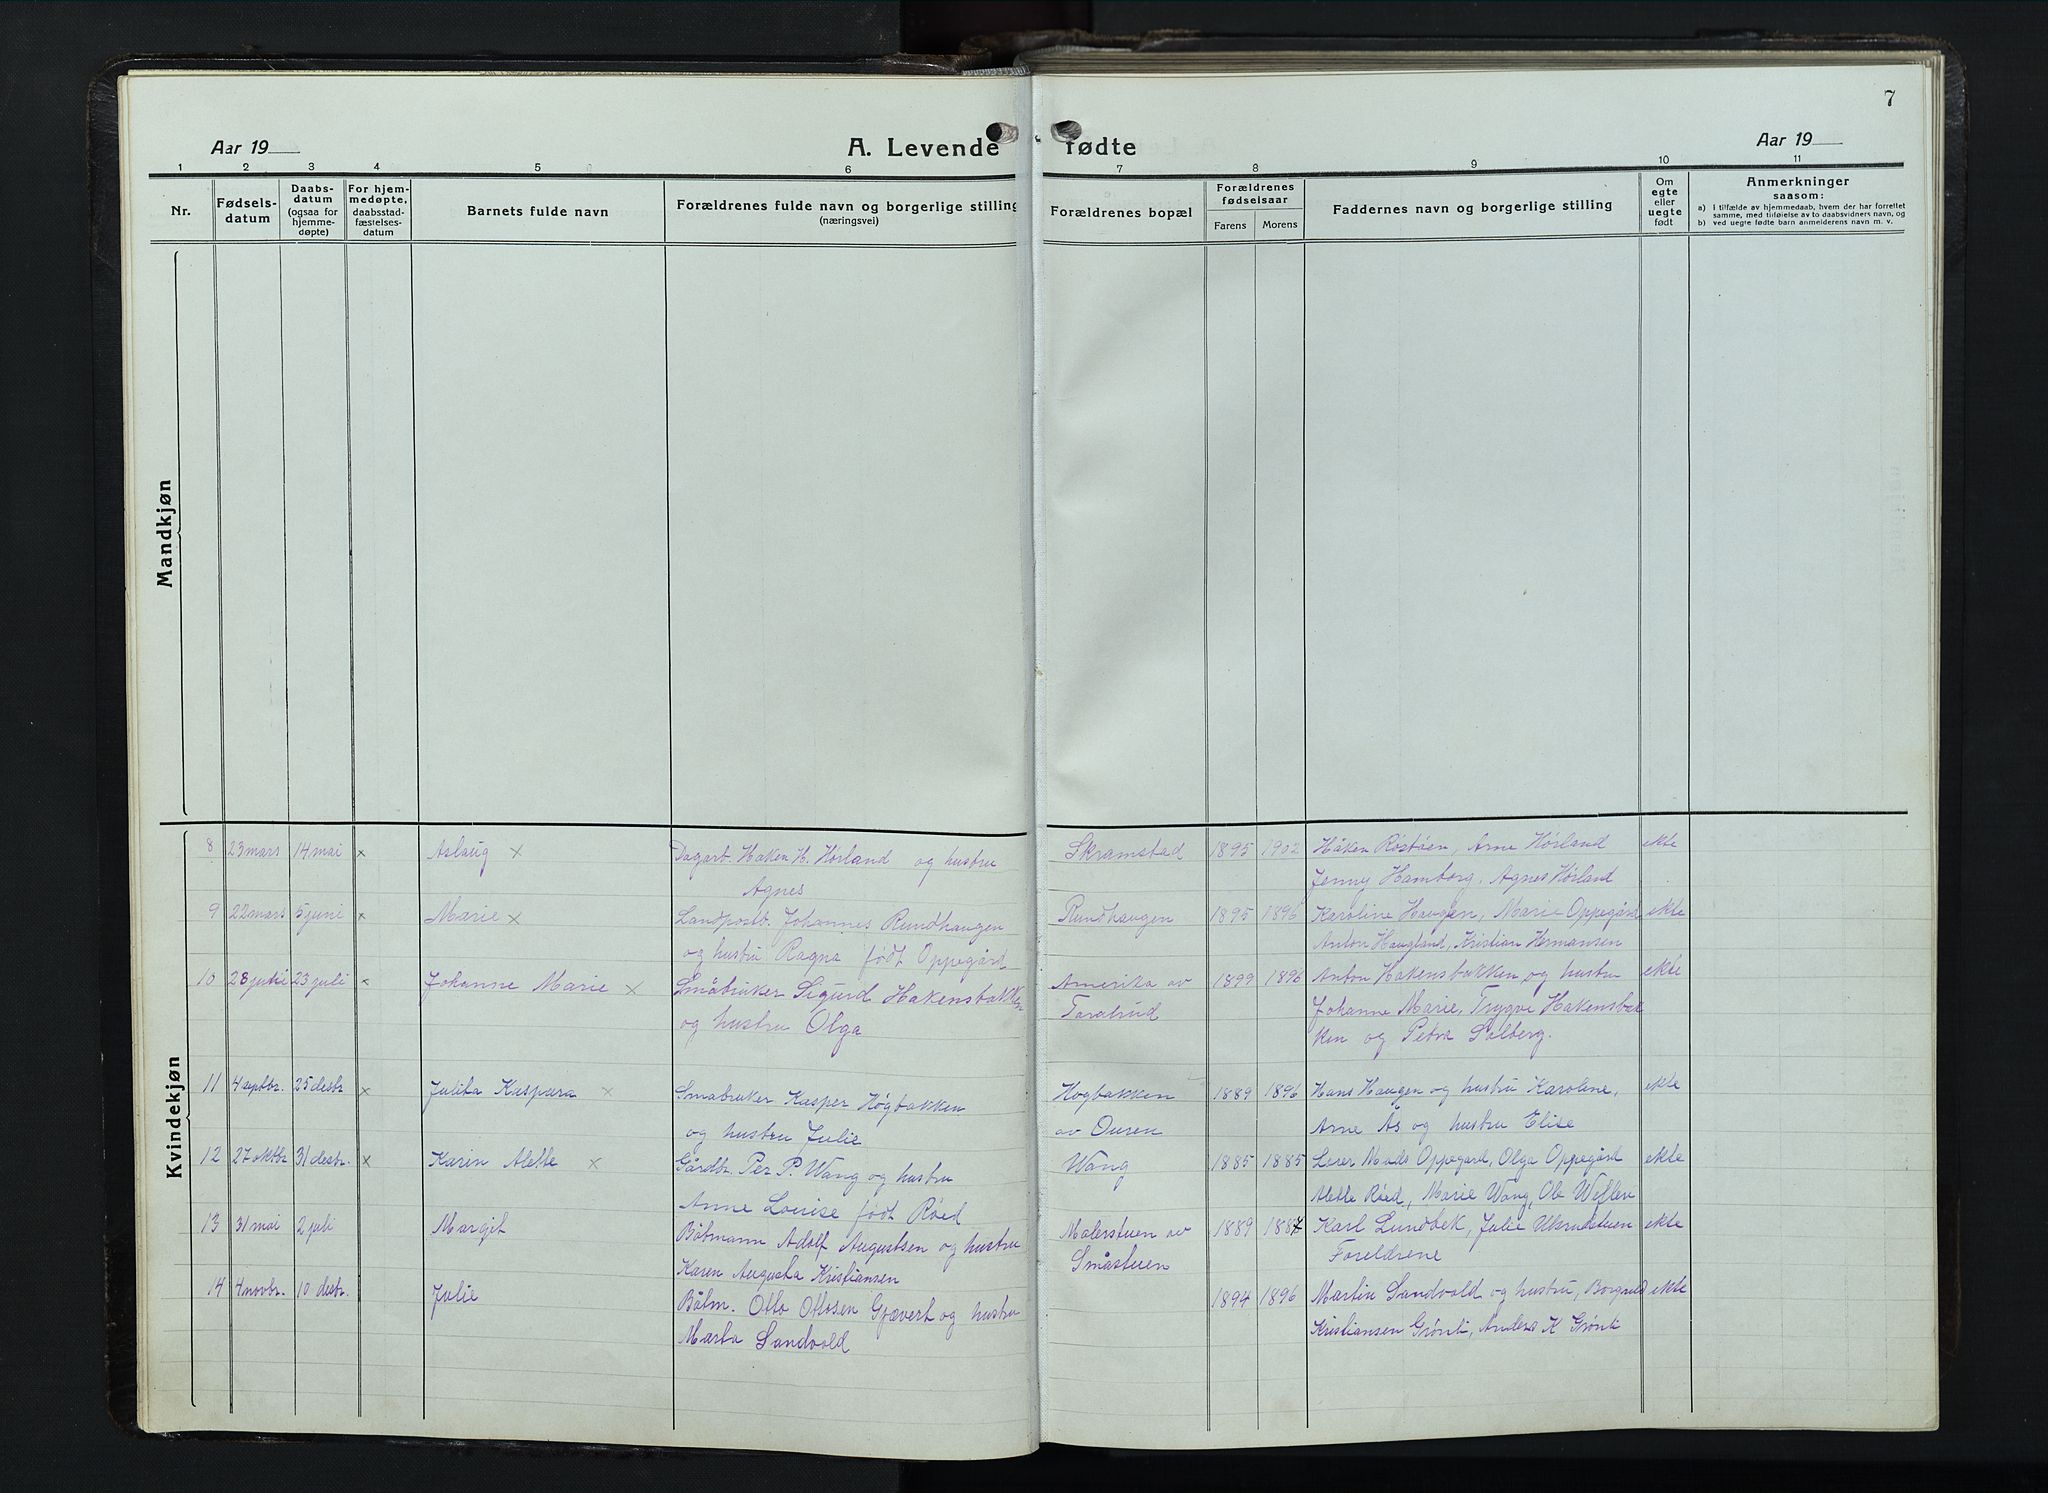 7
Aar 19
A. Levende fødte
Aar 19
1 2 3 4 5 6 7 8 9 10 11
Nr.
Fødsels-
datum
Daabs-
datum
(ogsaa for
hjemme-
døpte)
For hjem-
medøpte,
daabsstad-
fæstelses-
datum
Barnets fulde navn
Forældrenes fulde navn og borgerlige stilling
(næringsvei)
Forældrenes bopæl
Forældrenes
fødselsaar
Farens Morens
Faddernes navn og borgerlige stilling
Om
egte
eller
uegte
født
Anmerkninger
saasom:
a) I tilfælde av hjemmedaab, hvem der har forrettet
samme, med tilføielse av to daabsvidners navn, og
b) ved uegte fødte barn anmelderens navn m. v.
Mandkjøn
Kvindekjøn
8 23 mars 14 mai x Aslaug x Dagarb. Haken H. Hørland og hustru Skramstad 1895 1902 Håken Røstøen, Arne Hørland ekte
Agnes Jenny Hamborg, Agnes Hørland
9 22 mars 5 juni x Marie x Landpostb. Johannes Rundhaugen Rundhaugen 1895 1896 Karoline Haugen, Marie Oppegård ekte
og hustru Ragna født Oppegård Anton Haugland, Kristian Hermansen
10 28 23 juli x Johanne Marie x Småbruker Sigurd Hakensbakken Amerika av 1899 1896 Anton Hakensbakken og hustru ekte
og hustru Olga Taralrud Johanne Marie, Trygve Hakensbak
ken og Petra Solberg.
11 4 septbr. 25 desbr x Julita Kaspara x Småbruker Kasper Høgbakken Høgbakken 1889 1896 Hans Haugen og hustru Karoline, ekte
og hustru Julie av Ouren Arne Ås og hustru Elise
12 27 oktbr 31 desbr. x Karin Alette x Gårdbr. Per P. Wang og hustru Wang 1885 1885 Lærer Mads Oppegård, Olga Oppegård ekte
Anne Louise født Røed Alette Røed, Marie Wang, Ole
13 31 mai 2 juli Margit Båtmann Adolf Augustsen og hustru Malerstuen av 1889 1887 Karl Lundbek, Julie ekte
Karen Augusta Kristiansen Småstuen Foreldrene
14 4 novbr. 10 desbr. Julie Båtm. Otto Ottosen Gjævert og hustru 1894 1896 Martin Sandvold og hustru, Borgnild ekte
Marta Sandvold Kristiansen Grønli, Anders K Grønli